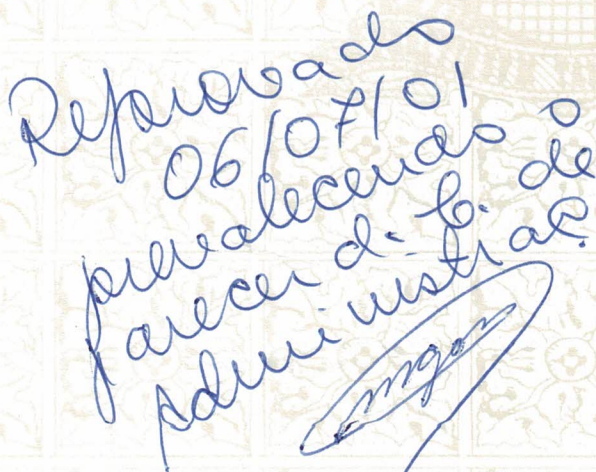 Reprovado
06/07/01
prevalecendo o
parecer d. C. de
Administraç.